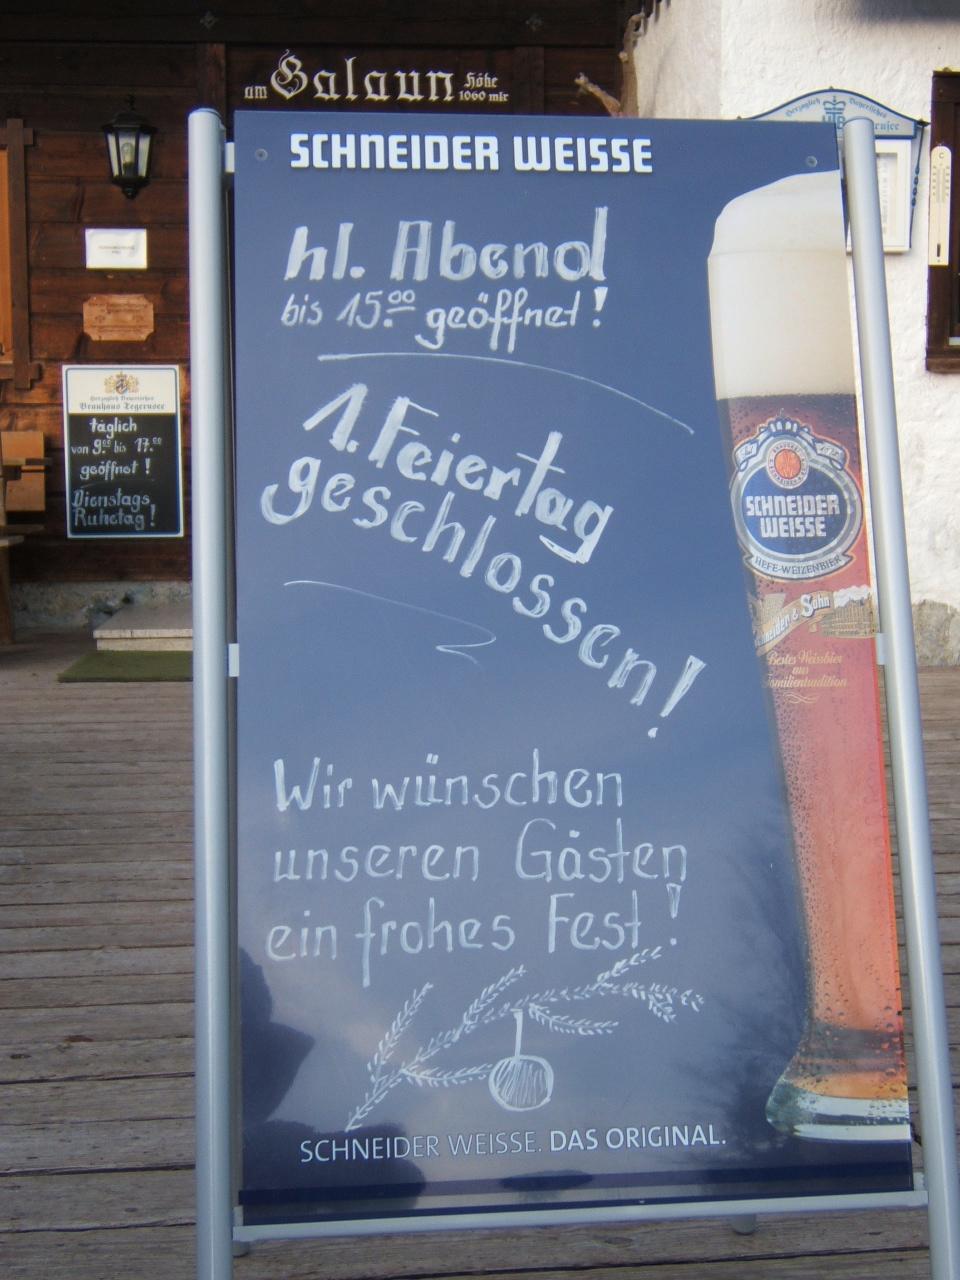 am Galaun Höhe
1060 mtr
SCHNEIDER WEISSE
hl. Abend
bis 15.00 geöffnet!
1. Feiertag
geschlossen!
Wir wünschen
unseren Gästen
ein frohes Fest!
SCHNEIDER WEISSE. DAS ORIGINAL.
SCHNEIDER
WEISSE
HEFE-WEIZENBIER
Schneider & Sohn
Bestes Weissbier
aus
Familientradition
Herzoglich Bayerisches
Brauhaus Tegernsee
täglich
von 9.00 bis 17.00
geöffnet!
Dienstags
Ruhetag!
Herzoglich Bayerisch